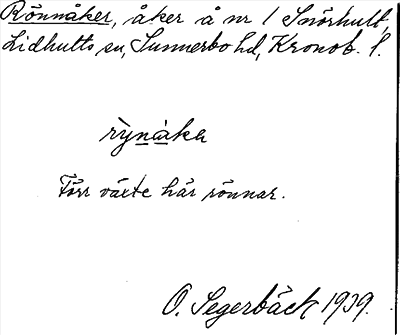 Rönnåker, åker å nr 1 Snörhult,
Lidhults sn, Sunnerbo hd, Kronob. l.
rỳnåkə
Förr växte här rönnar.
O. Segerbäck 1939.